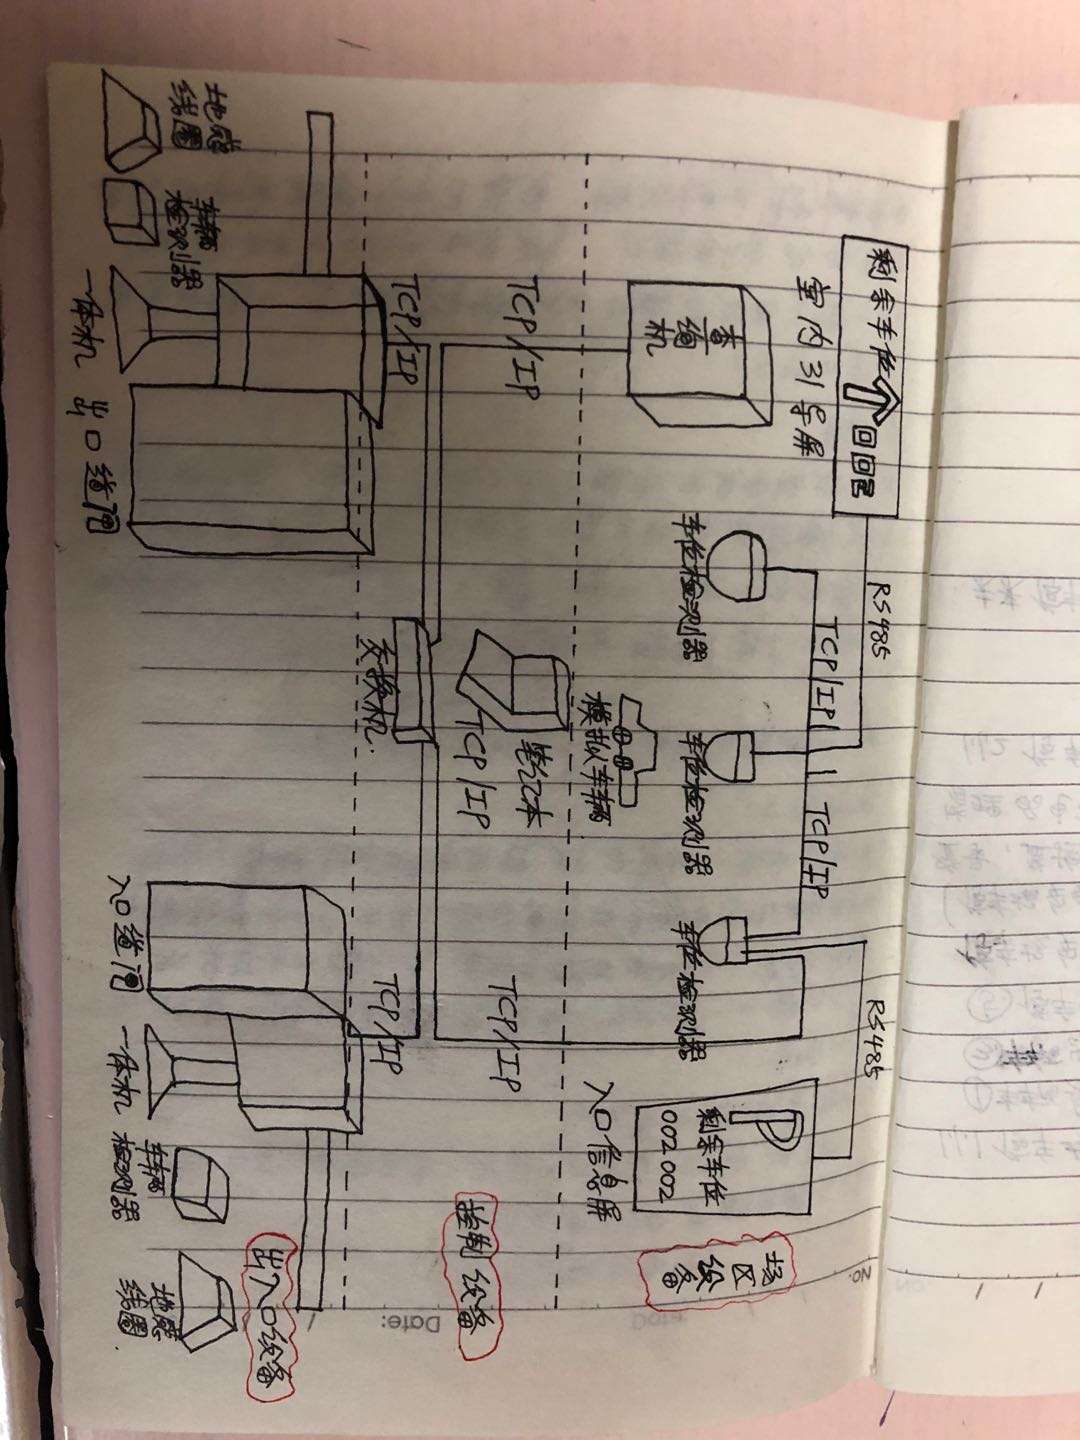 剩余车位
回回回
室内引导屏
RS485
RS485
查询机
车位检测器
车位检测器
车位检测器
TCP/IP
TCP/IP
P
剩余车位
002 002
入口信息屏
场区
设备
模拟车辆
笔记本
TCP/IP
TCP/IP
TCP/IP
控制设备
交换机
TCP/IP
TCP/IP
地感
线圈
车辆
检测器
一体机
出口道闸
入口道闸
一体机
车辆
检测器
地感
线圈
出入口设备
No.
Date: